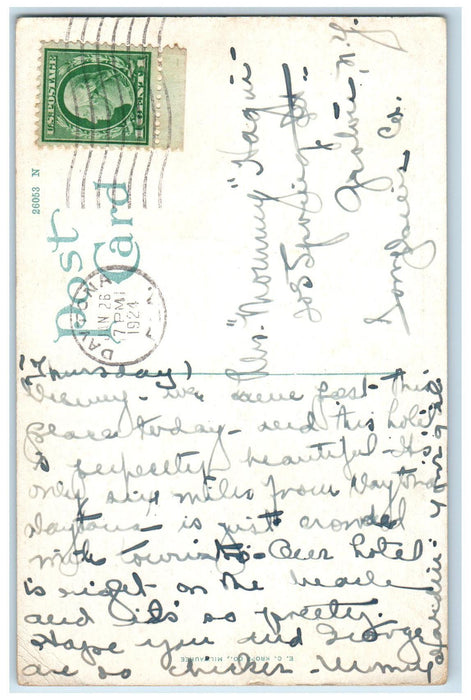 U.S. POSTAGE
1 CENT 1
26053 N
Post
Card
DAYTONA
JUN 26
7 PM
1924
Mrs. "Mommy"
Spring St
N.Y.
Co.
(Thursday)
we came past this
place today - and this hotel
is perfectly beautiful - It's
only six miles from Daytona
Daytona is just crowded
with tourists - Our hotel
is right on the beach
and it's so pretty.
Hope you and George
are so chicken -
E. C. KROPP CO., MILWAUKEE